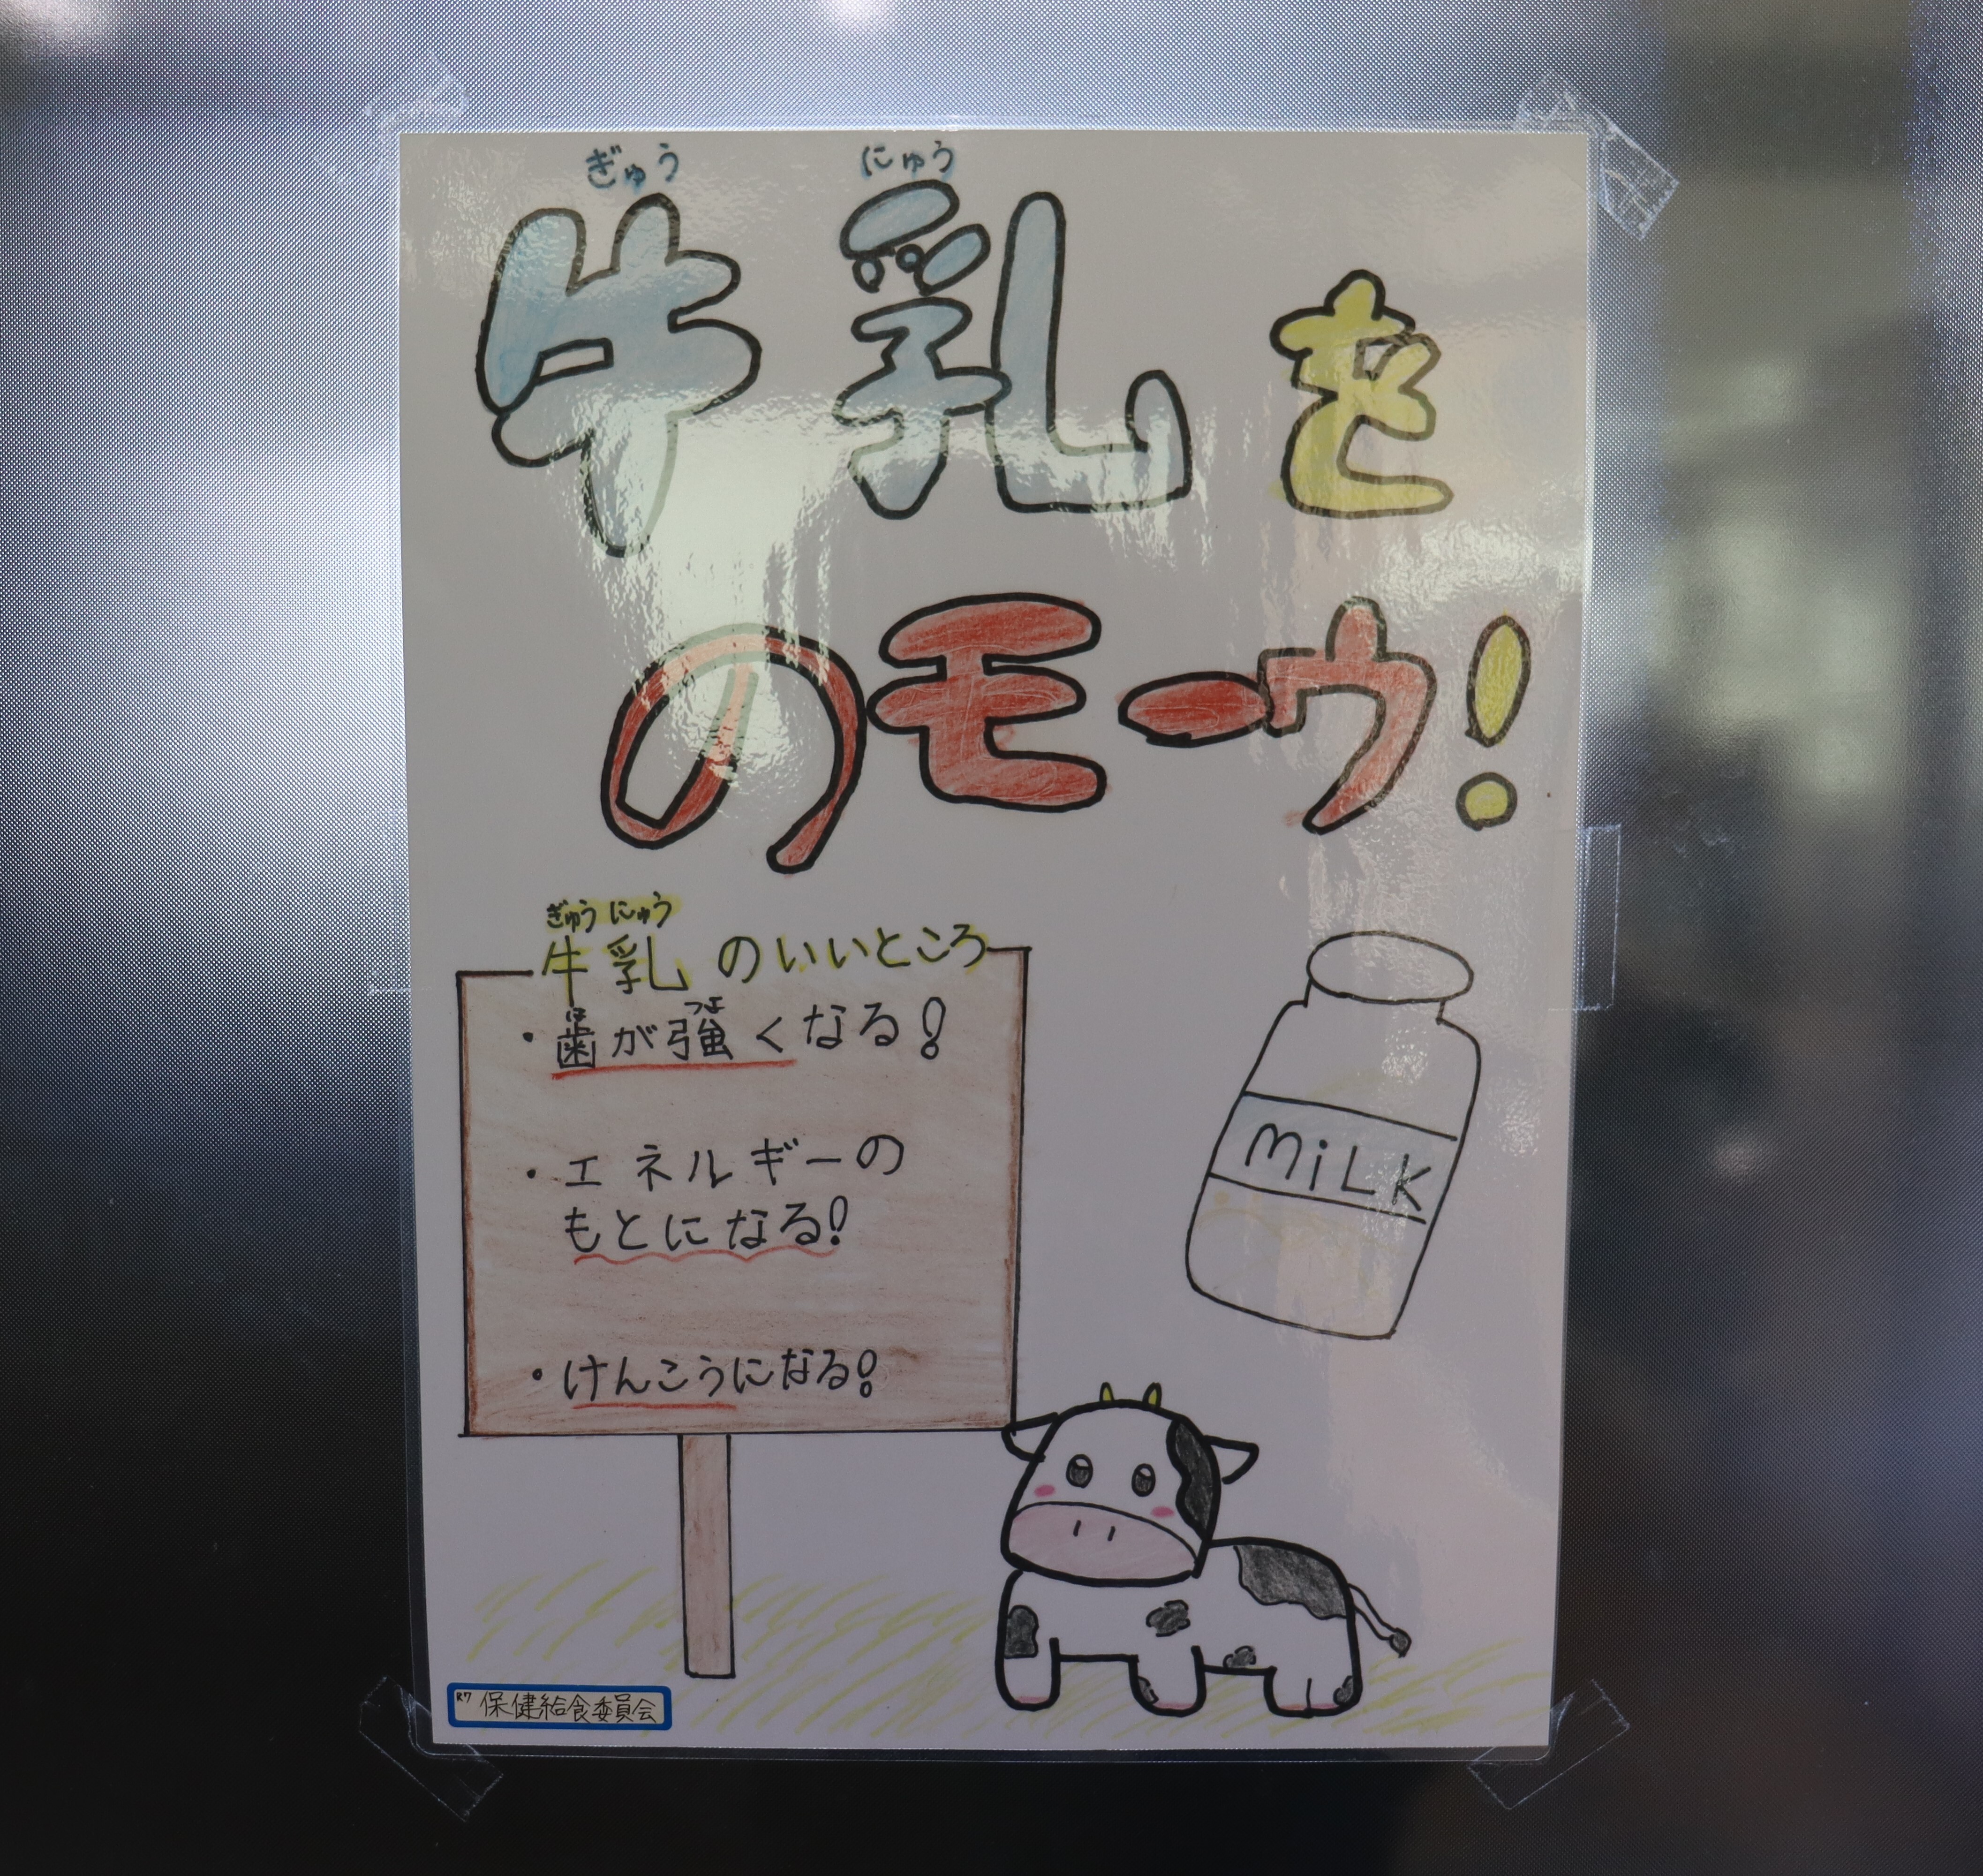 ぎゅう にゅう
牛乳を
のモーウ!
ぎゅう にゅう
牛乳のいいところ
は つよ
・歯が強くなる!
・エネルギーの
もとになる!
・けんこうになる!
MiLK
R7 保健給食委員会